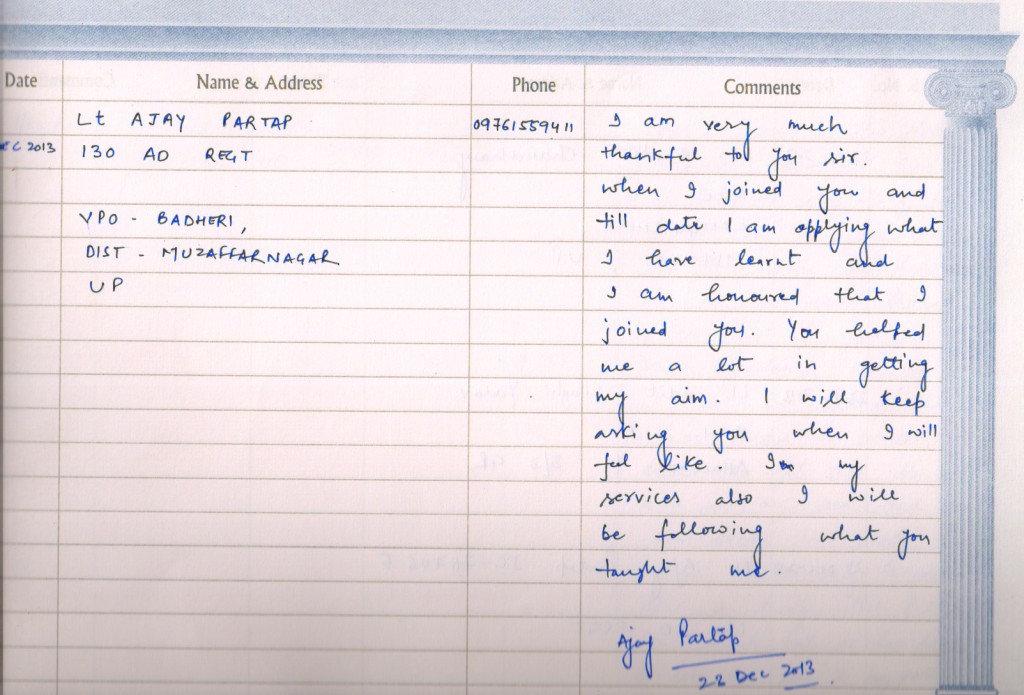 Date Name & Address Phone Comments
Lt AJAY PARTAP 09761559411
EC 2013 130 AD REGT
VPO - BADHERI,
DIST - MUZAFFARNAGAR
UP
I am very much
thankful to you sir.
when I joined you and
till date I am applying what
I have learnt and
I am honoured that I
joined you. You helped
me a lot in getting
my aim. I will keep
asking you when I will
feel like In my
services also I will
be following what you
taught me.
Ajay Partap
22 Dec 2013